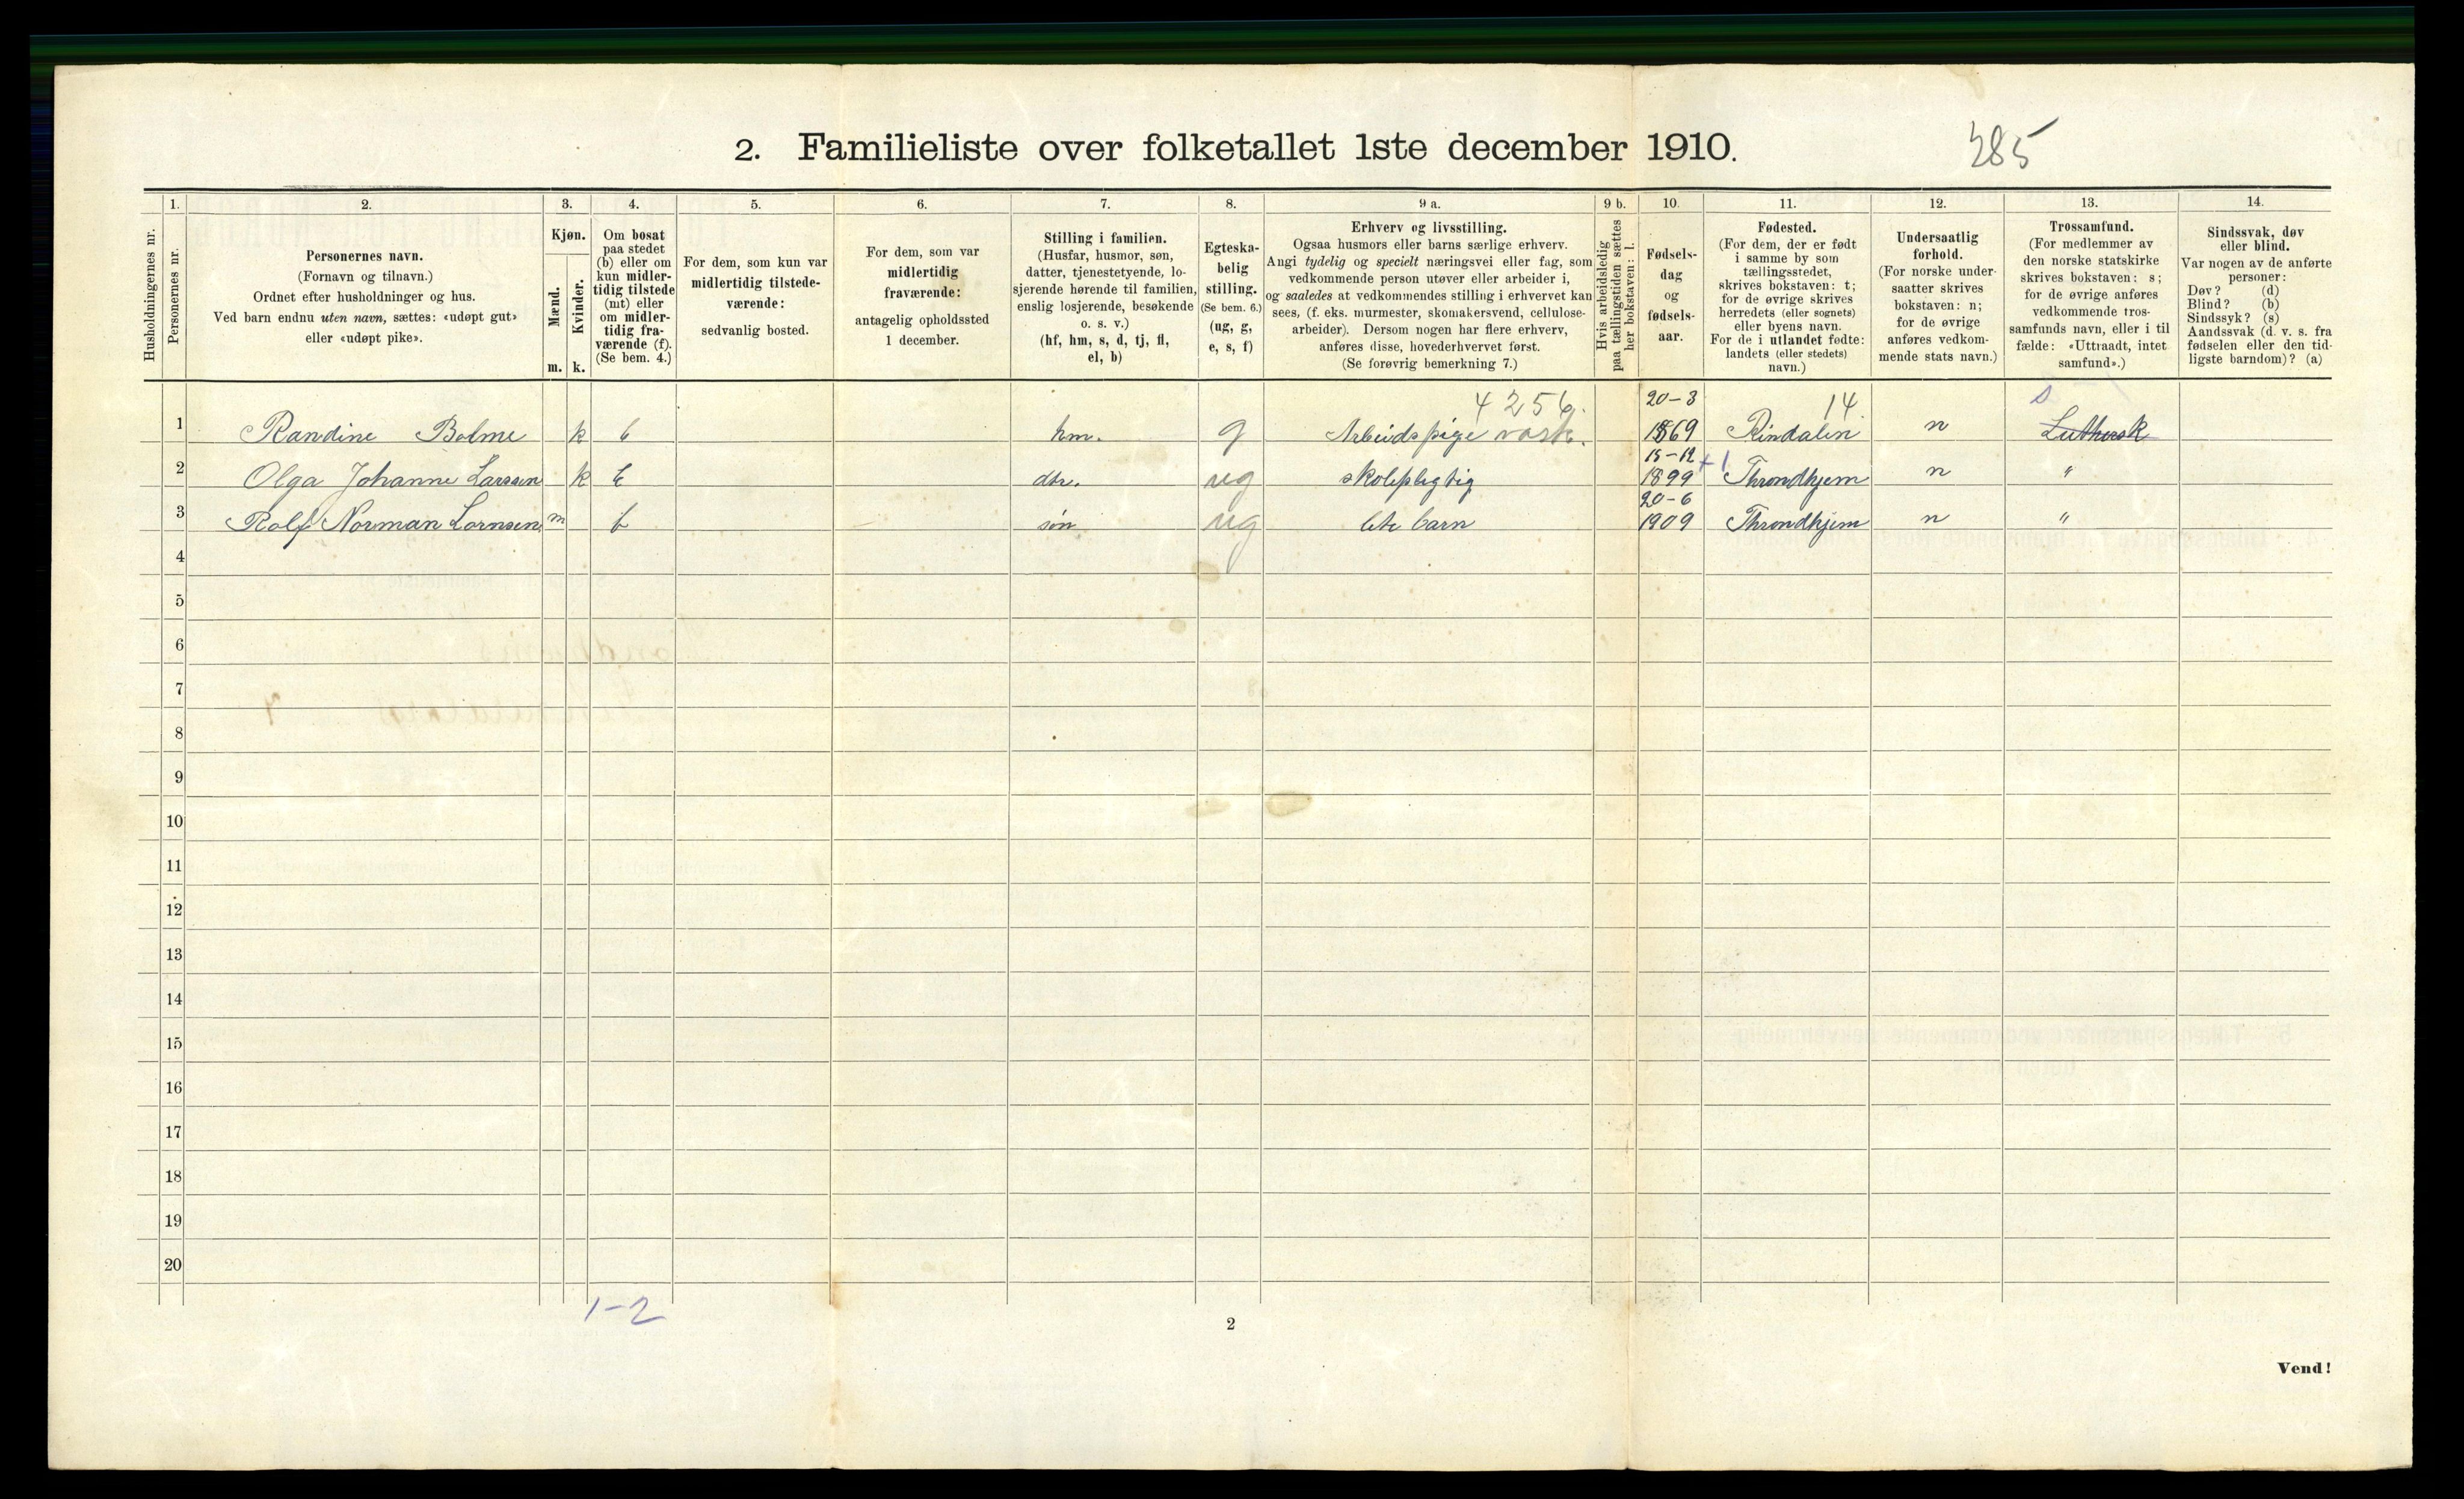 2. Familieliste over folketallet 1ste december 1910.
285
Husholdningernes nr.
1.
Personernes nr.
2.
Personernes navn.
(Fornavn og tilnavn.)
Ordnet efter husholdninger og hus.
Ved barn endnu uten navn, sættes: «udøpt gut»
eller «udøpt pike».
3.
Kjøn.
Mænd.
Kvinder.
m. k.
4.
Om bosat
paa stedet
(b) eller om
kun midler-
tidig tilstede
(mt) eller
om midler-
tidig fra-
værende (f).
(Se bem. 4.)
5.
For dem, som kun var
midlertidig tilstede-
værende:
sedvanlig bosted.
6.
For dem, som var
midlertidig
fraværende:
antagelig opholdssted
1 december.
7.
Stilling i familien.
(Husfar, husmor, søn,
datter, tjenestetyende, lo-
sjerende hørende til familien,
enslig losjerende, besøkende
o. s. v.)
(hf, hm, s, d, tj, fl,
el, b)
8.
Egteska-
belig
stilling.
(Se bem. 6.)
(ug, g,
e, s, f)
9 a.
Erhverv og livsstilling.
Ogsaa husmors eller barns særlige erhverv.
Angi tydelig og specielt næringsvei eller fag, som
vedkommende person utøver eller arbeider i,
og saaledes at vedkommendes stilling i erhvervet kan
sees, (f. eks. murmester, skomakersvend, cellulose-
arbeider). Dersom nogen har flere erhverv,
anføres disse, hovederhvervet først.
(Se forøvrig bemerkning 7.)
9 b.
Hvis arbeidsledig
paa tællingstiden sættes
her bokstaven: l.
10.
Fødsels-
dag
og
fødsels-
aar.
11.
Fødested.
(For dem, der er født
i samme by som
tællingsstedet,
skrives bokstaven: t;
for de øvrige skrives
herredets (eller sognets)
eller byens navn.
For de i utlandet fødte:
landets (eller stedets)
navn.)
12.
Undersaatlig
forhold.
(For norske under-
saatter skrives
bokstaven: n;
for de øvrige
anføres vedkom-
mende stats navn.)
13.
Trossamfund.
(For medlemmer av
den norske statskirke
skrives bokstaven: s;
for de øvrige anføres
vedkommende tros-
samfunds navn, eller i til
fælde: «Uttraadt, intet
samfund».)
14.
Sindssvak, døv
eller blind.
Var nogen av de anførte
personer:
Døv? (d)
Blind? (b)
Sindssyk? (s)
Aandssvak (d. v. s. fra
fødselen eller den tid-
ligste barndom)? (a)
4256. 20-3 14. s
1 Randine Bolme k b hm. g Arbeidspige vask. 1869 Rindalen n Luthersk
15-12
2 Olga Johanne Larssen k b dtr. ug skolepligtig 1899 +1 Throndhjem n "
20-6
3 Rolf Norman Lornsen m b søn ug lite barn 1909 Throndhjem n "
4
5
6
7
8
9
10
11
12
13
14
15
16
17
18
19
20
1-2
2
Vend!